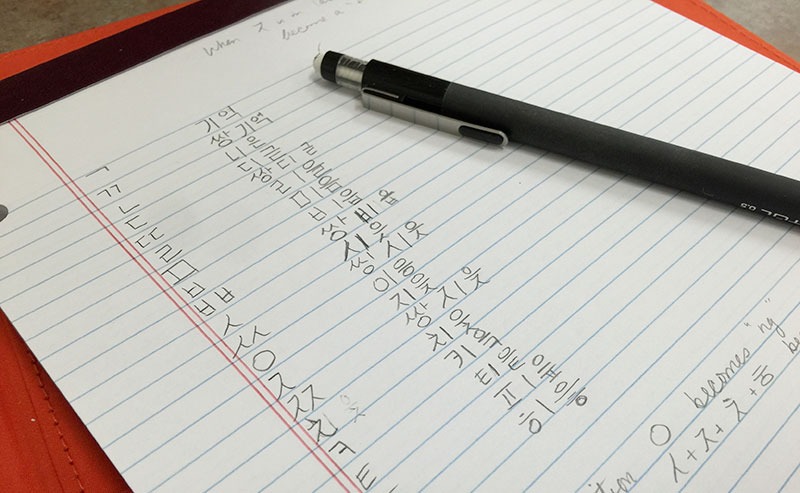 When
become a
ㄱ 기역
ㄲ 쌍기역
ㄴ 니은
ㄷ 디귿
쌍디귿
ㄹ 리을
ㅁ 미음
ㅂ 비읍
ㅃ 쌍비읍
ㅅ 시옷
ㅆ 쌍시옷
ㅇ 이응
ㅈ 지읒
ㅉ 쌍지읒
ㅊ 치읓
ㅋ 키읔
ㅌ 티읕
피읖
히읗
ㅇ becomes "ng"
ㅅ+ㅈ+ㅊ+ㅎ be